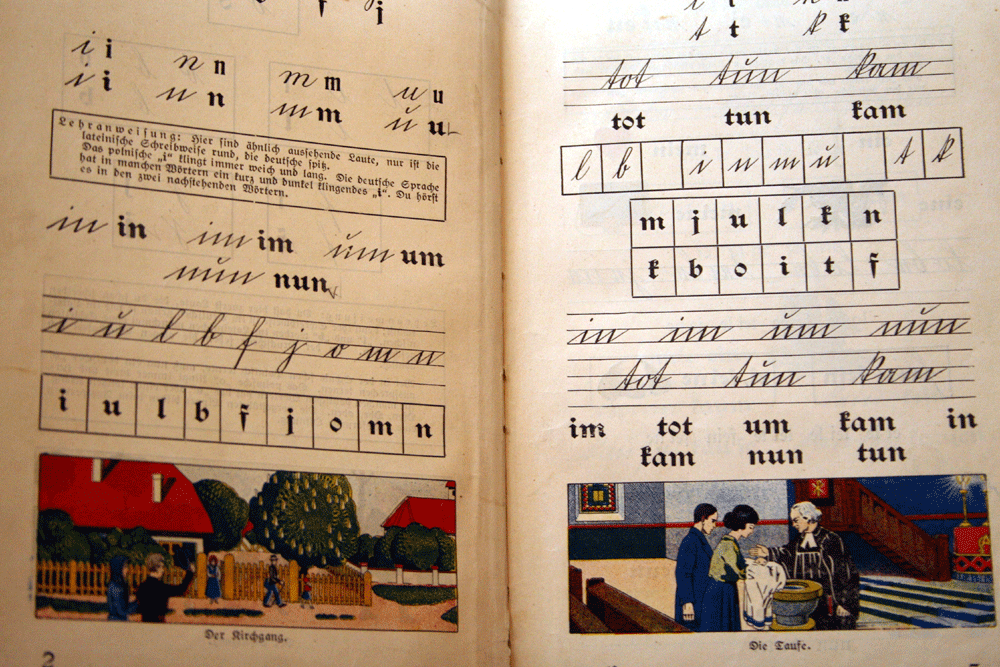 i i n n
m m u u
i i n n
m m u u
Lehranweisung: Hier sind ähnlich aussehende Laute, nur ist die
lateinische Schreibweise rund, die deutsche spitz.
Das polnische „i“ klingt immer weich und lang. Die deutsche Sprache
hat in manchen Wörtern ein kurz und dunkel klingendes „i“. Du hörst
es in den zwei nachstehenden Wörtern.
in in im im um um
nun nun
i u l b f j o m n
i u l b f j o m n
Der Kirchgang.
2
t t k k
tot tun kam
tot tun kam
l b i n m u t k
m j u l k n
k b o i t f
in im um nun
tot tun kam
im tot um kam in
kam nun tun
Die Taufe.